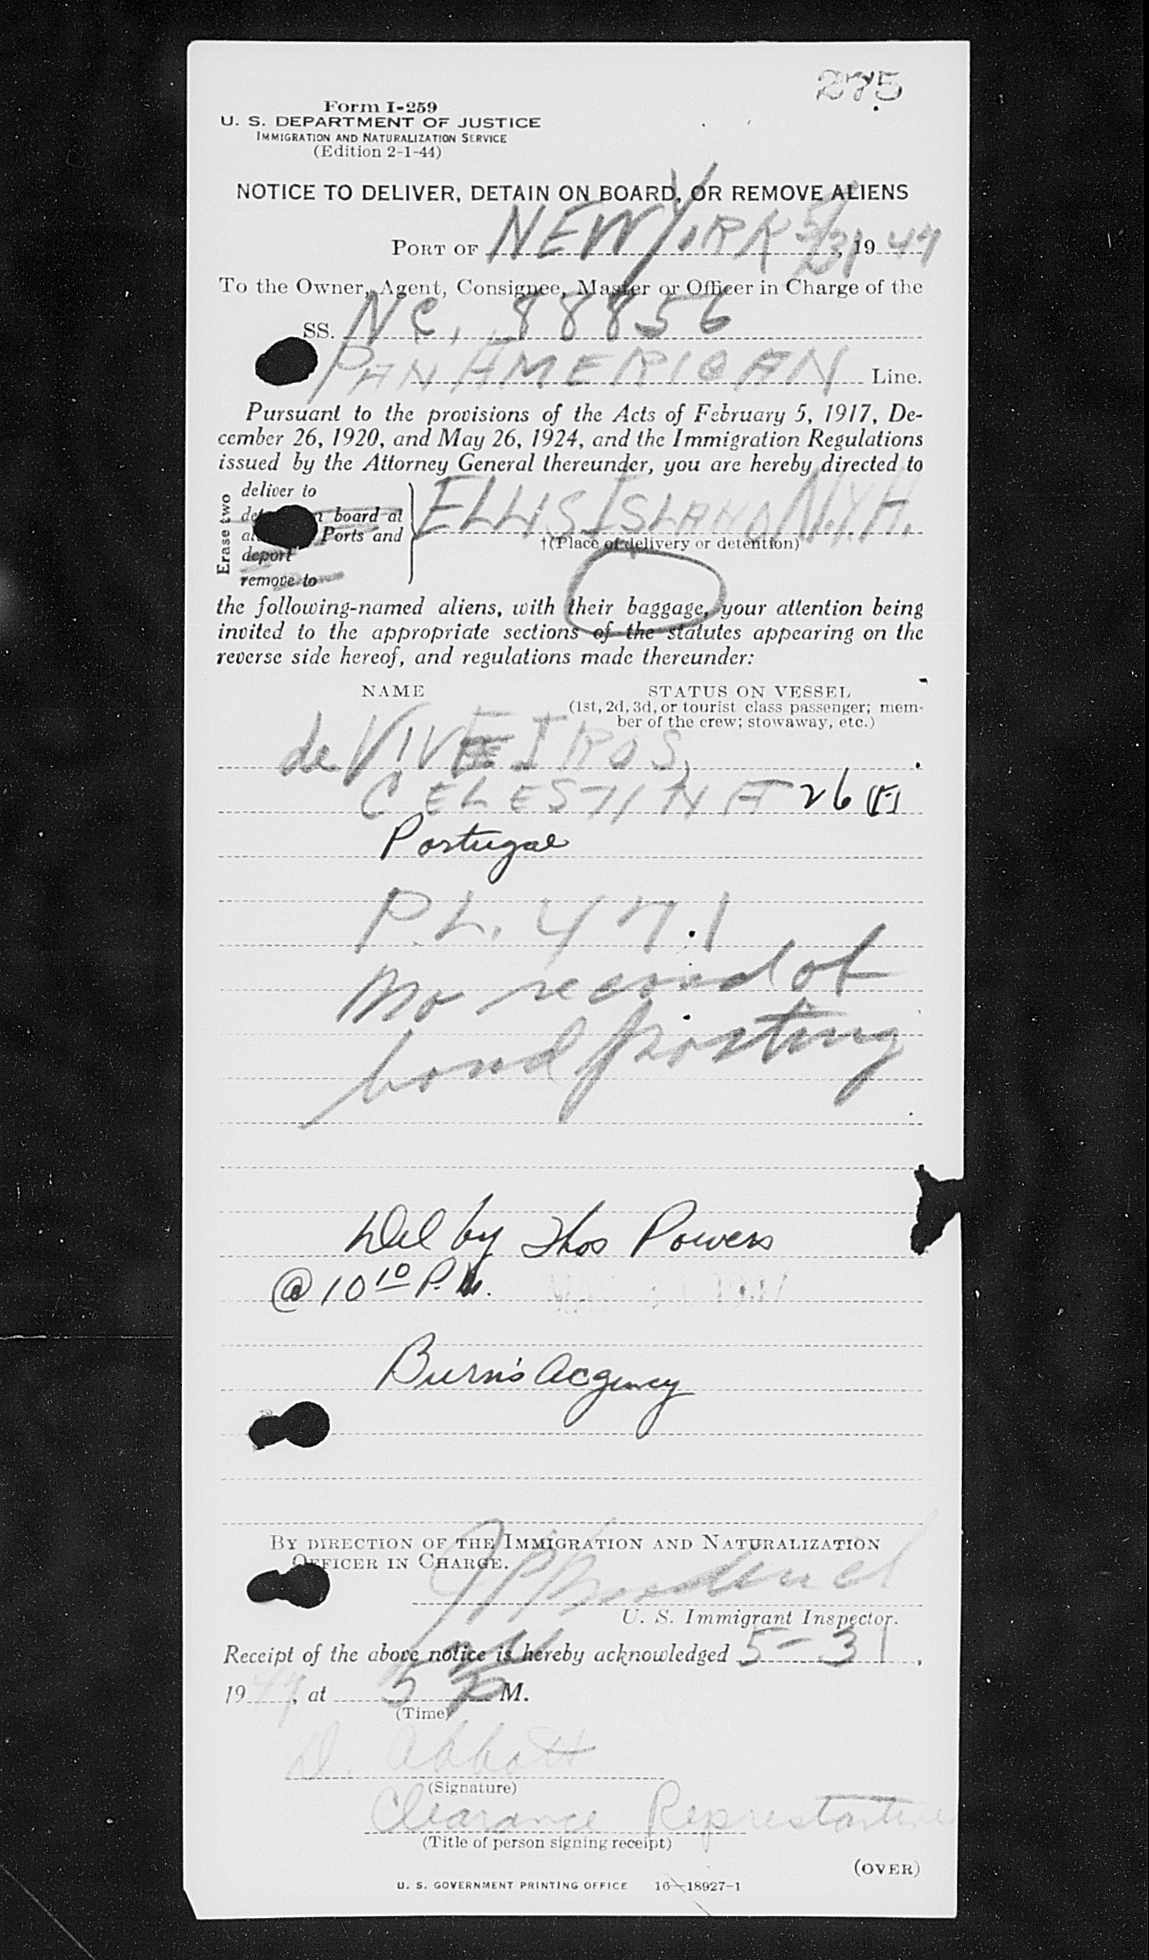 275
Form I-259
U. S. DEPARTMENT OF JUSTICE
IMMIGRATION AND NATURALIZATION SERVICE
(Edition 2-1-44)
NOTICE TO DELIVER, DETAIN ON BOARD, OR REMOVE ALIENS
PORT OF NEW YORK 5/31, 19 47
To the Owner, Agent, Consignee, Master or Officer in Charge of the
SS. NC, 88856
PAN AMERICAN Line.
Pursuant to the provisions of the Acts of February 5, 1917, De-
cember 26, 1920, and May 26, 1924, and the Immigration Regulations
issued by the Attorney General thereunder, you are hereby directed to
Erase two
deliver to
on board at
Ports and
deport
remove to
ELLIS ISLAND N.Y.H.
†(Place of delivery or detention)
the following-named aliens, with their baggage, your attention being
invited to the appropriate sections of the statutes appearing on the
reverse side hereof, and regulations made thereunder:
NAME STATUS ON VESSEL
(1st, 2d, 3d, or tourist class passenger; mem-
ber of the crew; stowaway, etc.)
de VIVEIROS,
CELESTINA 26 (F)
Portugal
P.L. 471
No record of
bond posting
Del by Thos Powers
@ 10 10 P.M.
Burn's Acgency
BY DIRECTION OF THE IMMIGRATION AND NATURALIZATION
OFFICER IN CHARGE.
U. S. Immigrant Inspector.
Receipt of the above notice is hereby acknowledged 5-31,
1947, at 5 P M.
(Time)
D. Abbott
(Signature)
Clearance Represtative
(Title of person signing receipt)
(OVER)
U. S. GOVERNMENT PRINTING OFFICE 16-18927-1